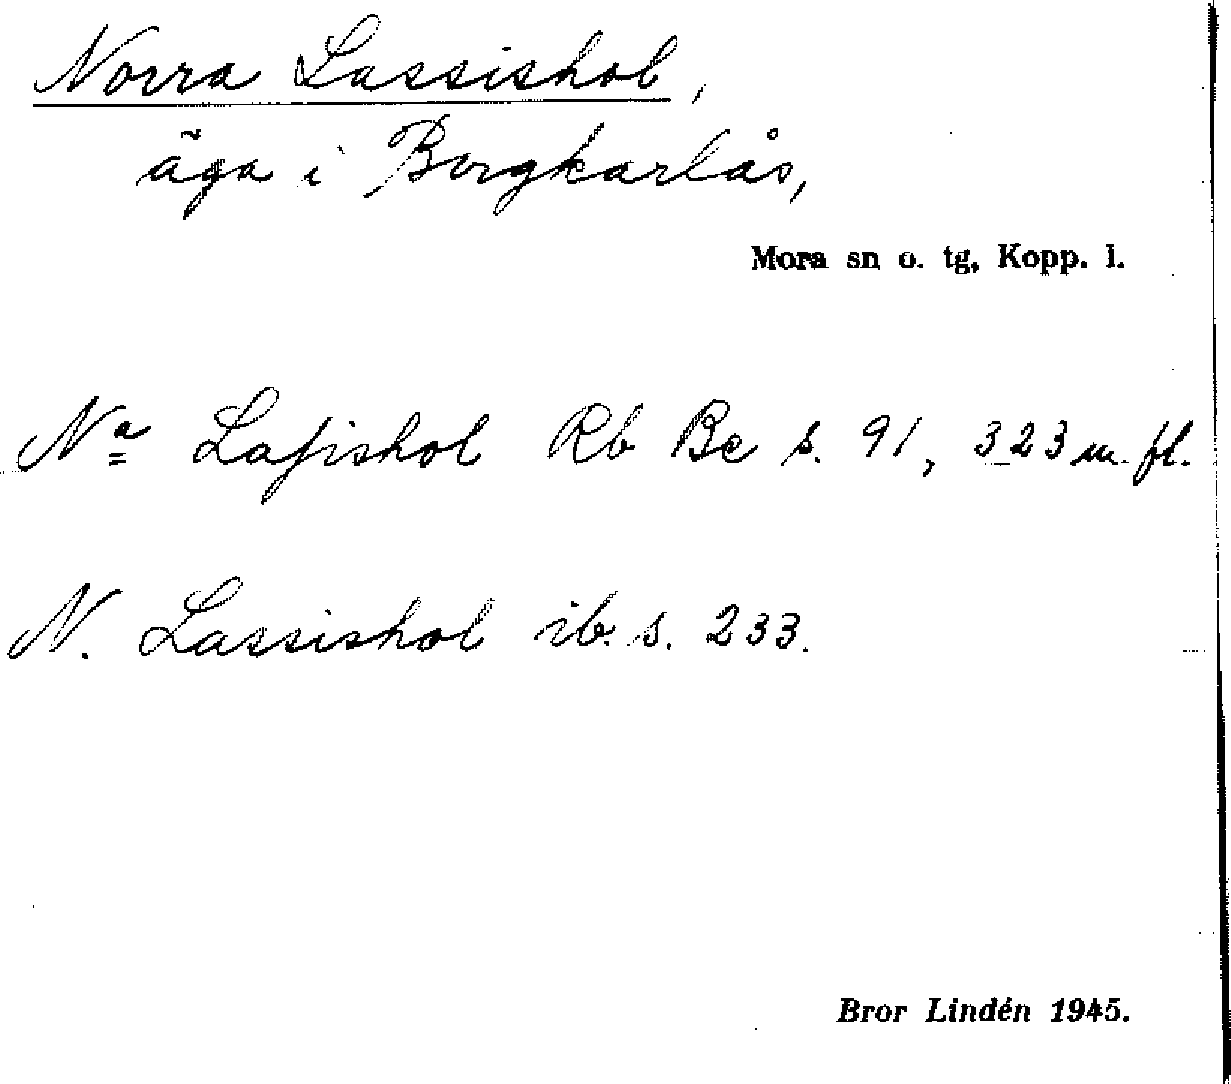 Norra Lassishol,
äga i Bergkarlås,
Mora sn o. tg, Kopp. l.
Nª Laſsishol Rb Be s. 91, 323 m. fl.
N. Lassishol ib. s. 233.
Bror Lindén 1945.